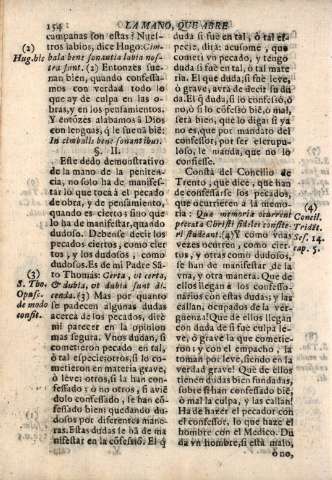 154 LA MANO, QUE ABRE
campanas son estas? Nues-
tros labios, dice Hugo: Cim-
bala bene sonantia labia nos-
tra sunt. (2) Entonzes sue-
nan bien, quando confessa-
mos con verdad todo lo
que ay de culpa en las o-
bras, y en los pensamientos.
Y entõzes alabamos à Dios
con lenguas, q̃ le suenã biē:
In cimbalis bene sonantibus.
§. II.
Este dedo demonstrativo
de la mano de la peniten-
cia, no solo ha de manifes-
tar lo que tocà el pecado
de obra, y de pensamiento,
quando es cierto; sino que
lo ha de manifestar, quando
dudoso. Debense decir los
pecados ciertos, como cier
tos, y los dudosos, como
dudosos. Es de mi Padre Sã-
to Thomàs: Certa, vt certa,
& dubia, vt dubia sunt di-
cenda. (3) Mas por quanto
se padecen algunas dudas
acerca de los pecados, dirè
mi parecer en la opinion
mas segura. Vnos dudan, si
cometieron pecado en tal,
ò tal especie; otros, si lo co-
metieron en materia grave,
ò leve: otros, si la han con-
fessado: ò no otros, si avië
dolo confessado, se han cõ-
fessado bien: quedando du-
dosos por diferentes mane-
ras. Estas dudas se hã de ma
nifestar en la cõfessiõ. El q̃
(2)
Hug. hic
(3)
S. Tho.
Opusc.
de modo
confit.
duda si fue en tal, ò tal es-
pecie, dirà: acusome, que
cometì vn pecado, y tengo
duda si fue en tal, ò tal mate
ria. El que duda, si fue leve,
ò grave, avrà de decir su du
da. El q̃ duda, si lo cõfessò, ò
no, ò si lo cõfessò biē, ò mal,
serà bien, que lo diga: si ya
no es, que por mandato del
confessor, por ser escrupu-
loso, le manda, que no lo
confiesse.
Consta del Concilio de
Trento, que dice, que han
de confessarse los pecados,
que ocurrieren à la memo-
ria: Que memoria ocurrint
peccata Christi fideles confite-
ri studeant. (4) Y como vnas
vezes ocurren, como cier-
tos, y otras como dudosos,
se han de manifestar de la
vna, y otra manera. Que de
ellos llegan à los confesso-
narios con estas dudas; y las
callan, ocupados de la ver-
guenza! Que de ellos llegan
con duda de si fue culpa le-
ve, ò grave la que cometie-
ron: y con el empacho, la
toman por leve, siendo en la
verdad grave! Què de ellos
tienen dudas bien fundadas,
sobre si han confessado bië,
ò mal la culpa, y las callan!
Ha de hazer el pecador con
el confessor, lo que haze el
hombre con el Medico. Du
da vn hombre, si està malo,
ò no,
(4)
Concil.
Tridēt.
Ses. 14.
cap. 5.